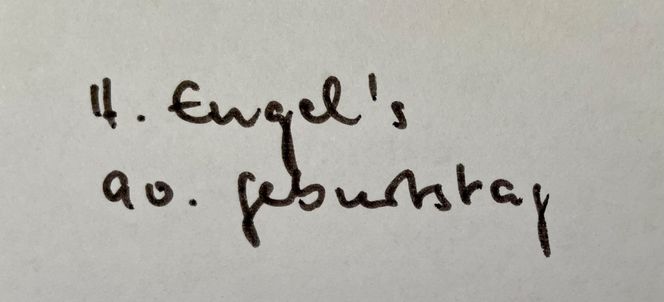 H. Engel's
90. Geburtstag